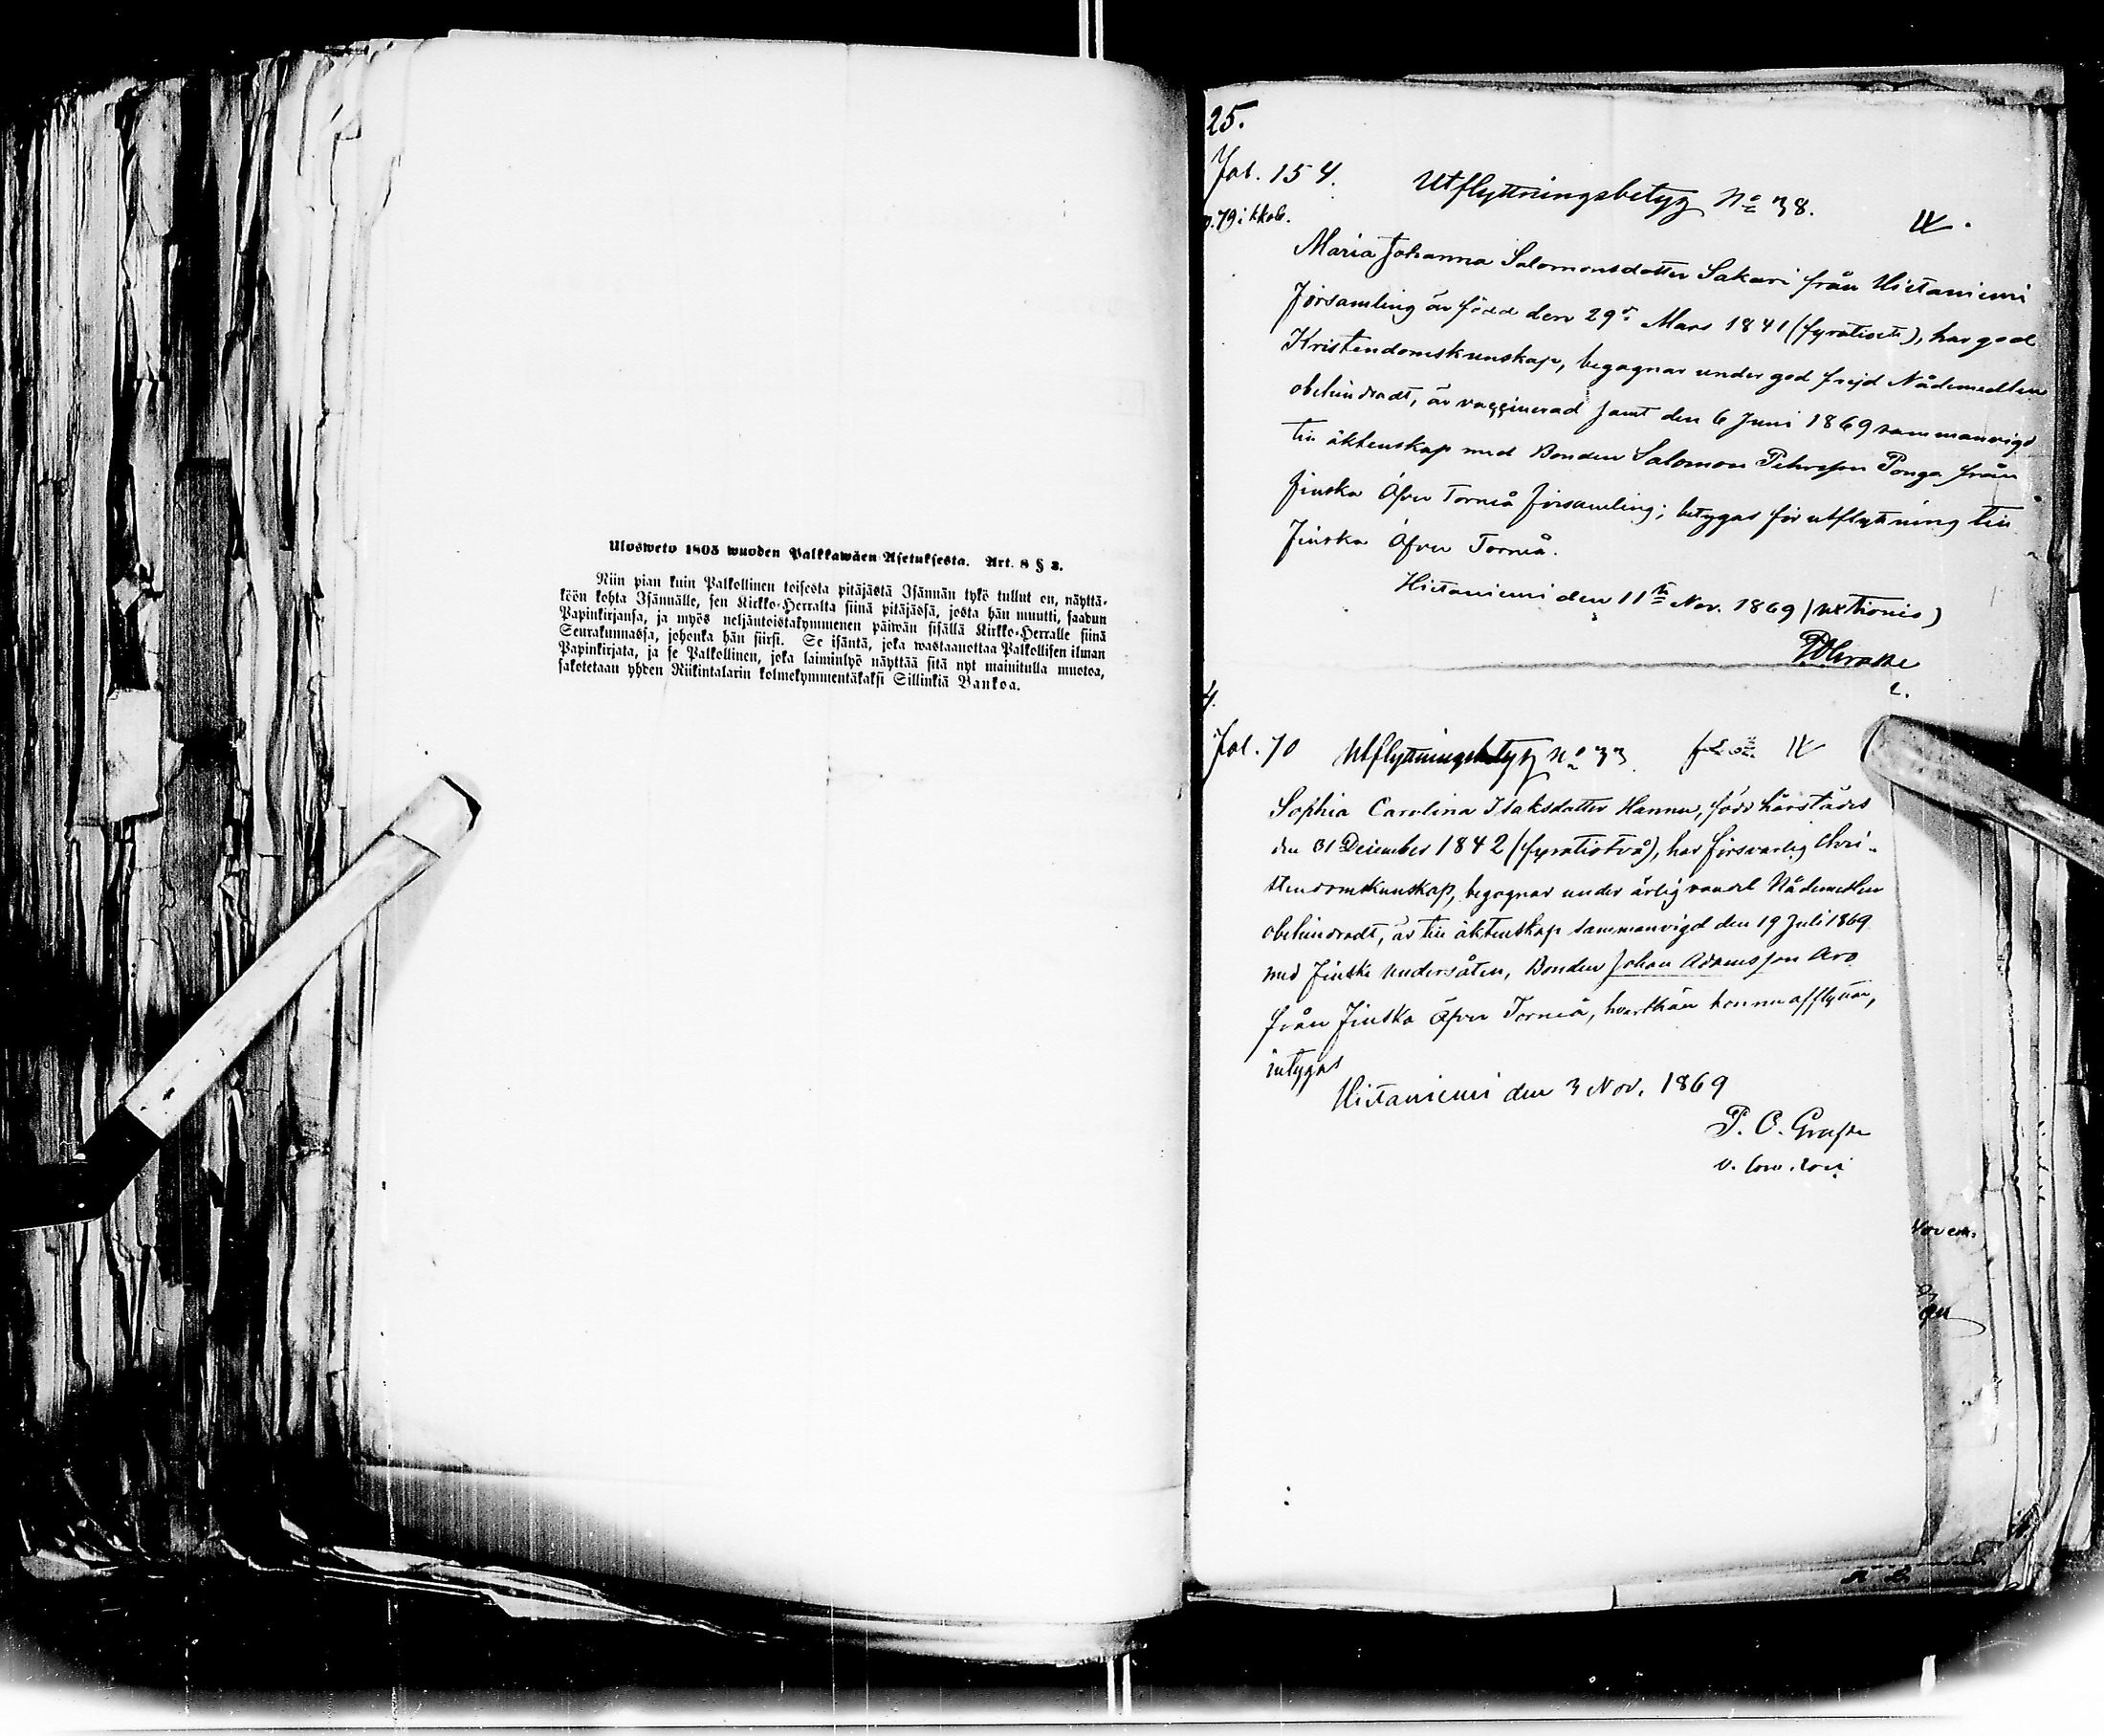 Ulosweto 1805 wuoden Palkkawäen Asetuksesta. Art. 8 § 3.
Niin pian kuin Palkollinen toisesta pitäjästä Isännän tykö tullut on, näyttä-
köön kohta Isännälle, sen Kirkko-Herralta siinä pitäjässä, josta hän muutti, saadun
Papinkirjansa, ja myös neljäntoistakymmenen päiwän sisällä Kirkko-Herralle siinä
Seurakunnassa, johonka hän siirsi. Se isäntä, joka wastaanottaa Palkollisen ilman
Papinkirjata, ja se Palkollinen, joka laiminlyö näyttää sitä nyt mainitulla muotoa,
sakotetaan yhden Riikintalarin kolmekymmentäkaksi Sillinkiä Bankoa.
25.
Fol. 154.
Utflyttningsbetyg No 38.
p. 79 i kkob.
Maria Johanna Salomonsdotter Sakari från Hietaniemi
Församling är född den 29de Mars 1841 (fyratioett), har god
Kristendomskunskap, begagnar under god frejd Nådemedlen
obehindradt, är vaccinerad samt den 6 Juni 1869 sammanvigd
till äktenskap med Bonden Salomon Pehrsson Ponga från
Finska Öfver Torneå församling; betygas för utflyttning till
Finska Öfver Torneå.
Hietaniemi den 11te Nov. 1869
P O Grape
4.
Fol. 70 Utflyttningsbetyg No 33
Sophia Carolina Isaksdotter Hannu, född härstädes
den 31 December 1842 (fyratiotvå), har försvarlig Chri-
stendomskunskap, begagnar under ärlig vandel Nådemedlen
obehindradt, är till äktenskap sammanvigd den 19 Juli 1869
med Finske Undersåten, Bonden Johan Adamsson Aro
från Finska Öfver Torneå, hvarthän hon nu afflyttar,
intygas
Hietaniemi den 3 Nov. 1869
P. O. Grape
Novem.